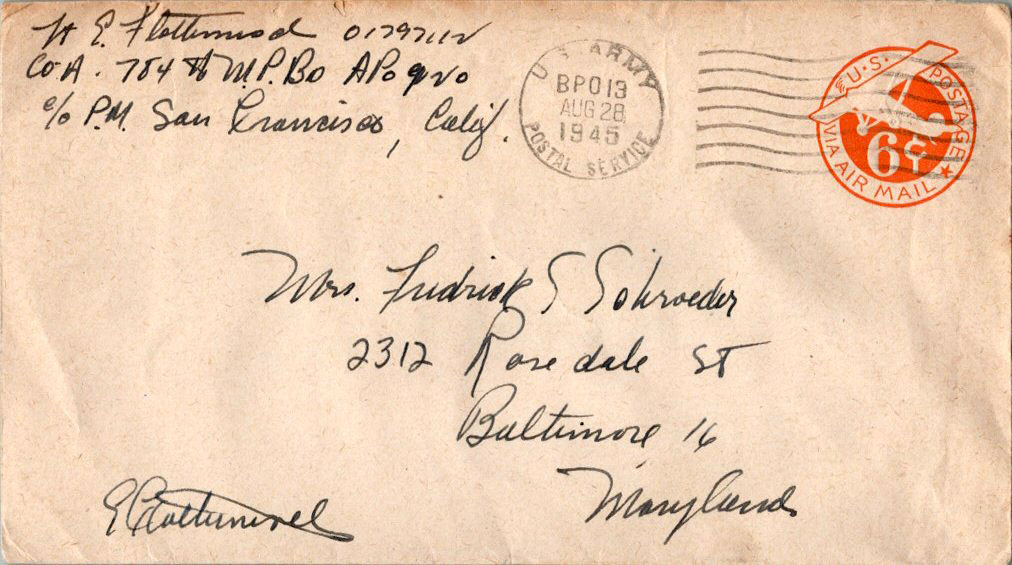 Lt E. Flottemesch 01797112
Co A. 784th M.P. Bn APO 920
c/o P.M. San Francisco, Calif.
U.S. ARMY
BPO 13
AUG 28
1945
POSTAL SERVICE
U.S. POSTAGE
6¢
VIA AIR MAIL
Mrs. Fredrick S Schroeder
2312 Rosedale ST
Baltimore 16
Maryland